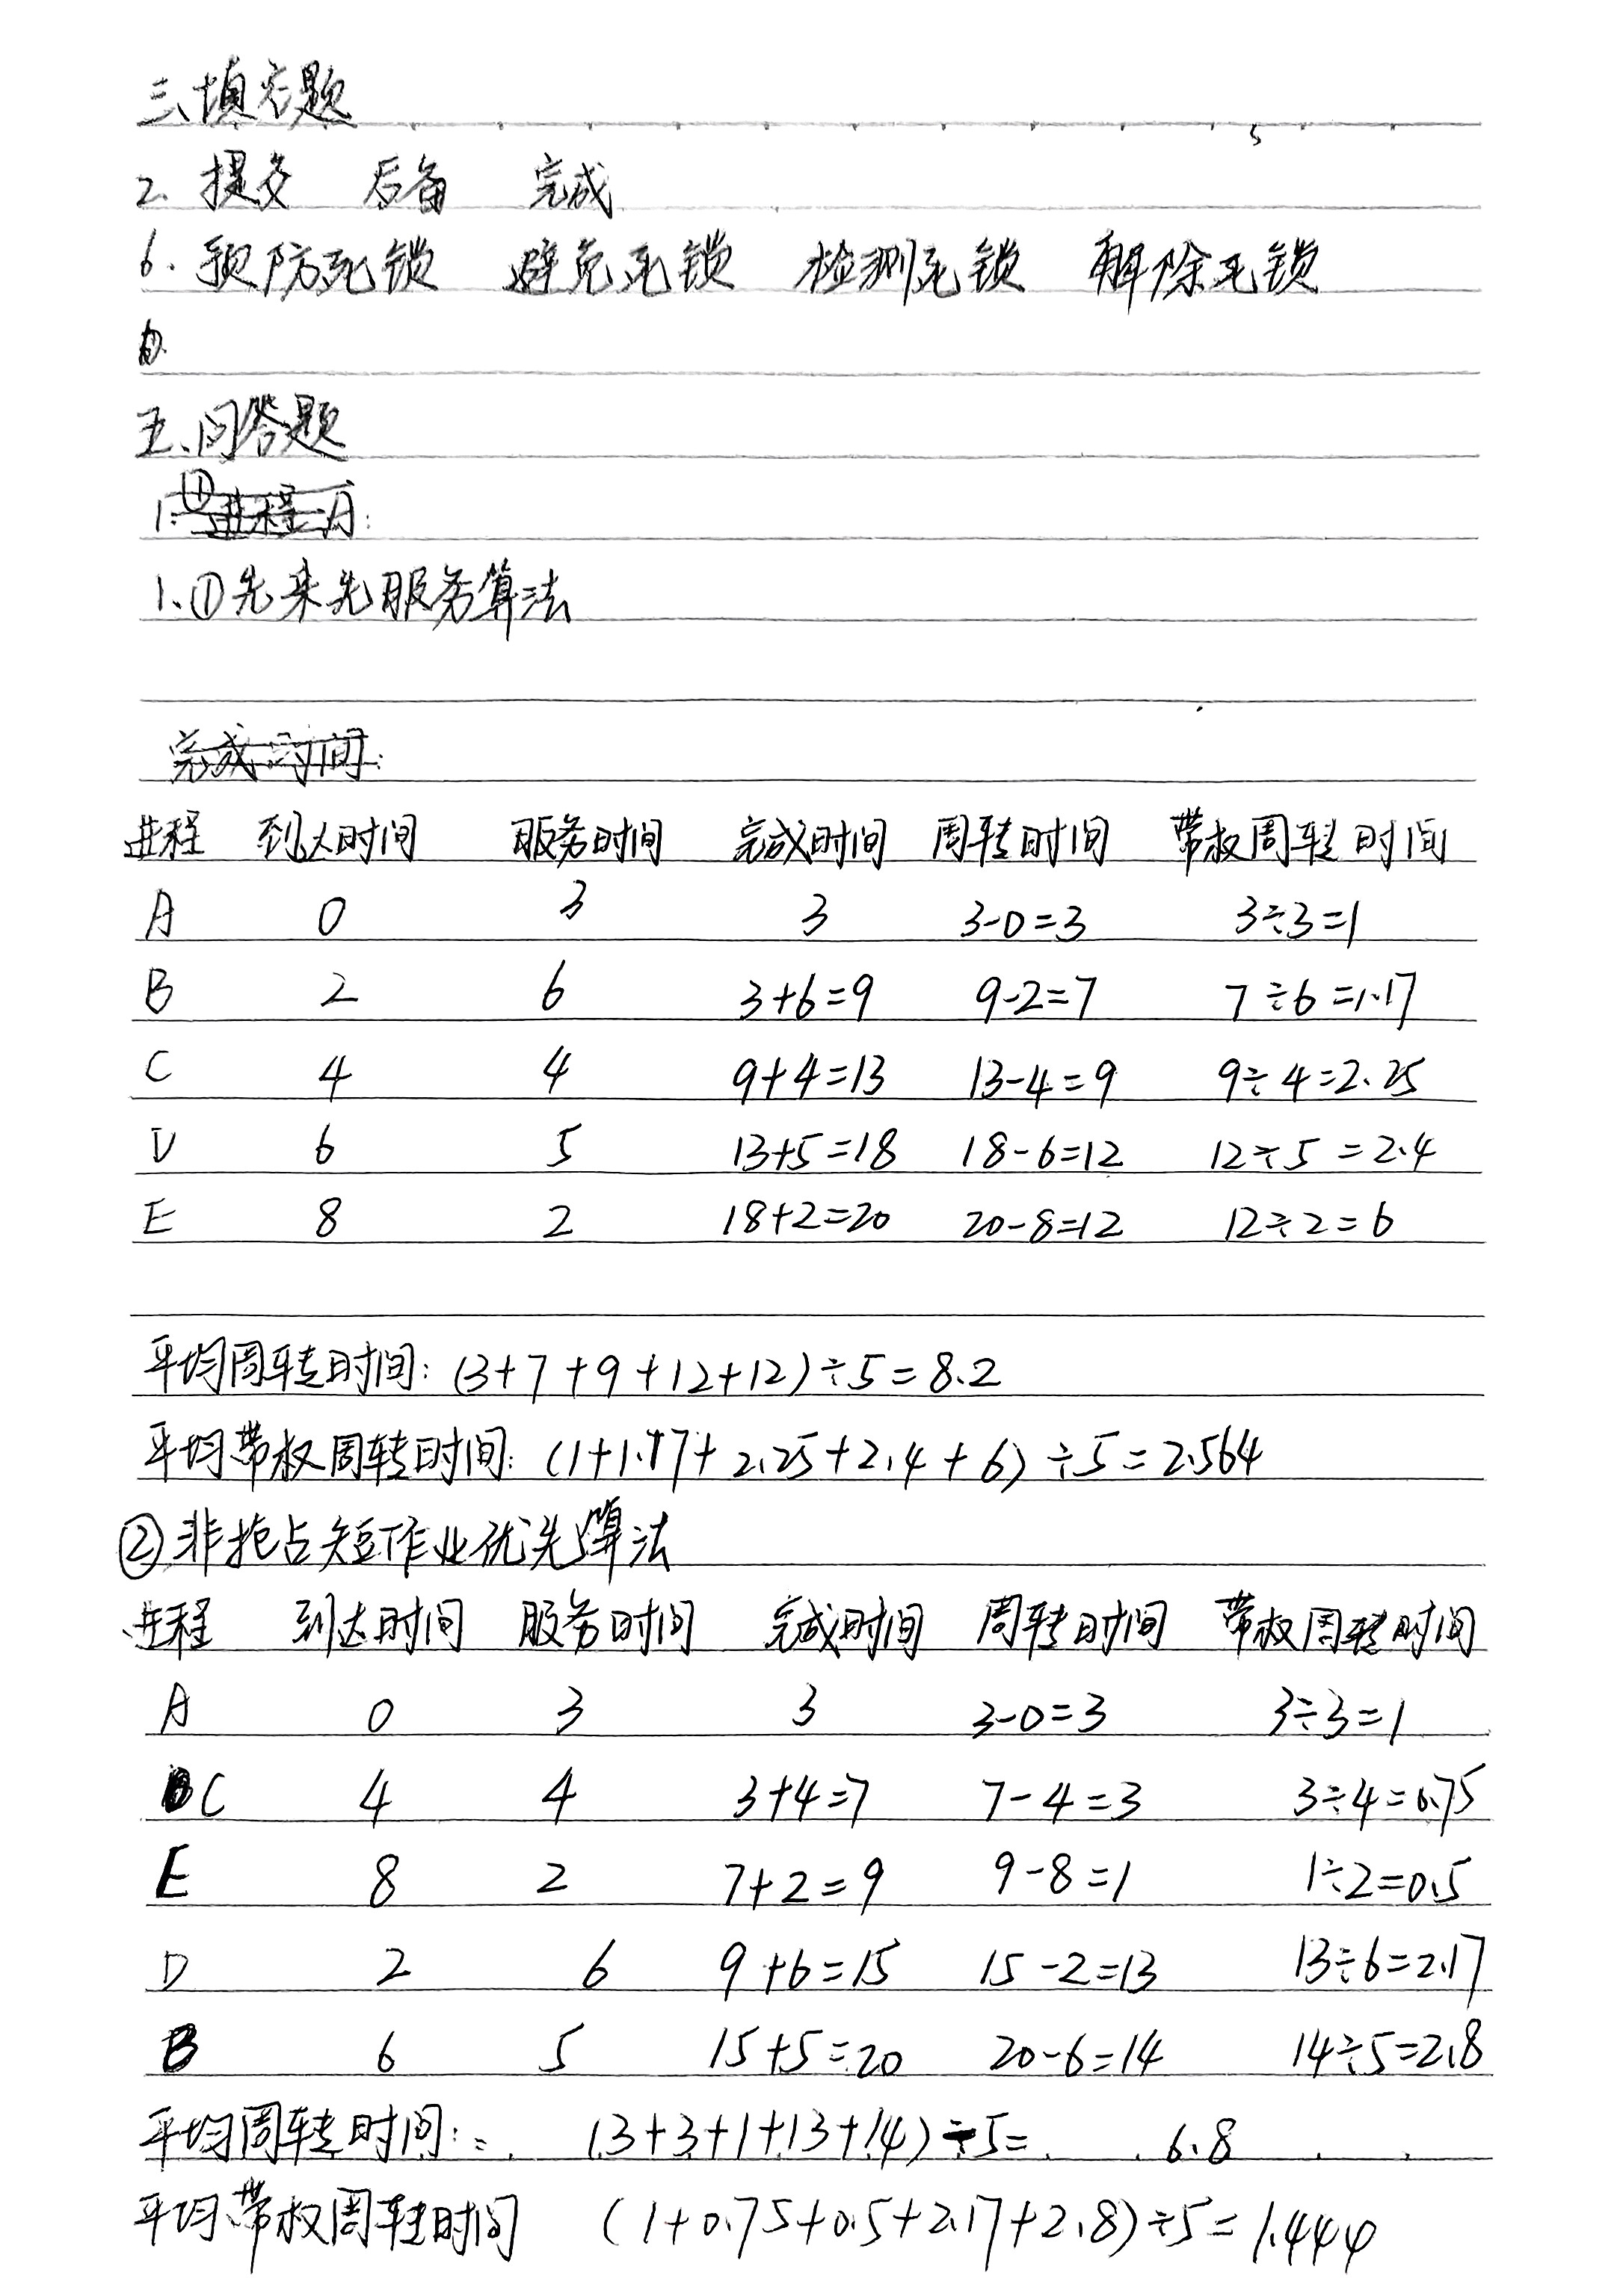 三、填空题
2. 提交 后备 完成
6. 预防死锁 避免死锁 检测死锁 解除死锁
五、问答题
1. ① 进程 A:
1、①先来先服务算法
完成时间:
进程 到达时间 服务时间 完成时间 周转时间 带权周转时间
A 0 3 3 3-0=3 3÷3=1
B 2 6 3+6=9 9-2=7 7÷6=1.17
C 4 4 9+4=13 13-4=9 9÷4=2.25
D 6 5 13+5=18 18-6=12 12÷5=2.4
E 8 2 18+2=20 20-8=12 12÷2=6
平均周转时间: (3+7+9+12+12)÷5=8.2
平均带权周转时间: (1+1.17+2.25+2.4+6)÷5=2.564
②非抢占短作业优先算法
进程 到达时间 服务时间 完成时间 周转时间 带权周转时间
A 0 3 3 3-0=3 3÷3=1
C 4 4 3+4=7 7-4=3 3÷4=0.75
E 8 2 7+2=9 9-8=1 1÷2=0.5
D 2 6 9+6=15 15-2=13 13÷6=2.17
B 6 5 15+5=20 20-6=14 14÷5=2.8
平均周转时间:= (3+3+1+13+14)÷5= 6.8
平均带权周转时间 (1+0.75+0.5+2.17+2.8)÷5=1.444